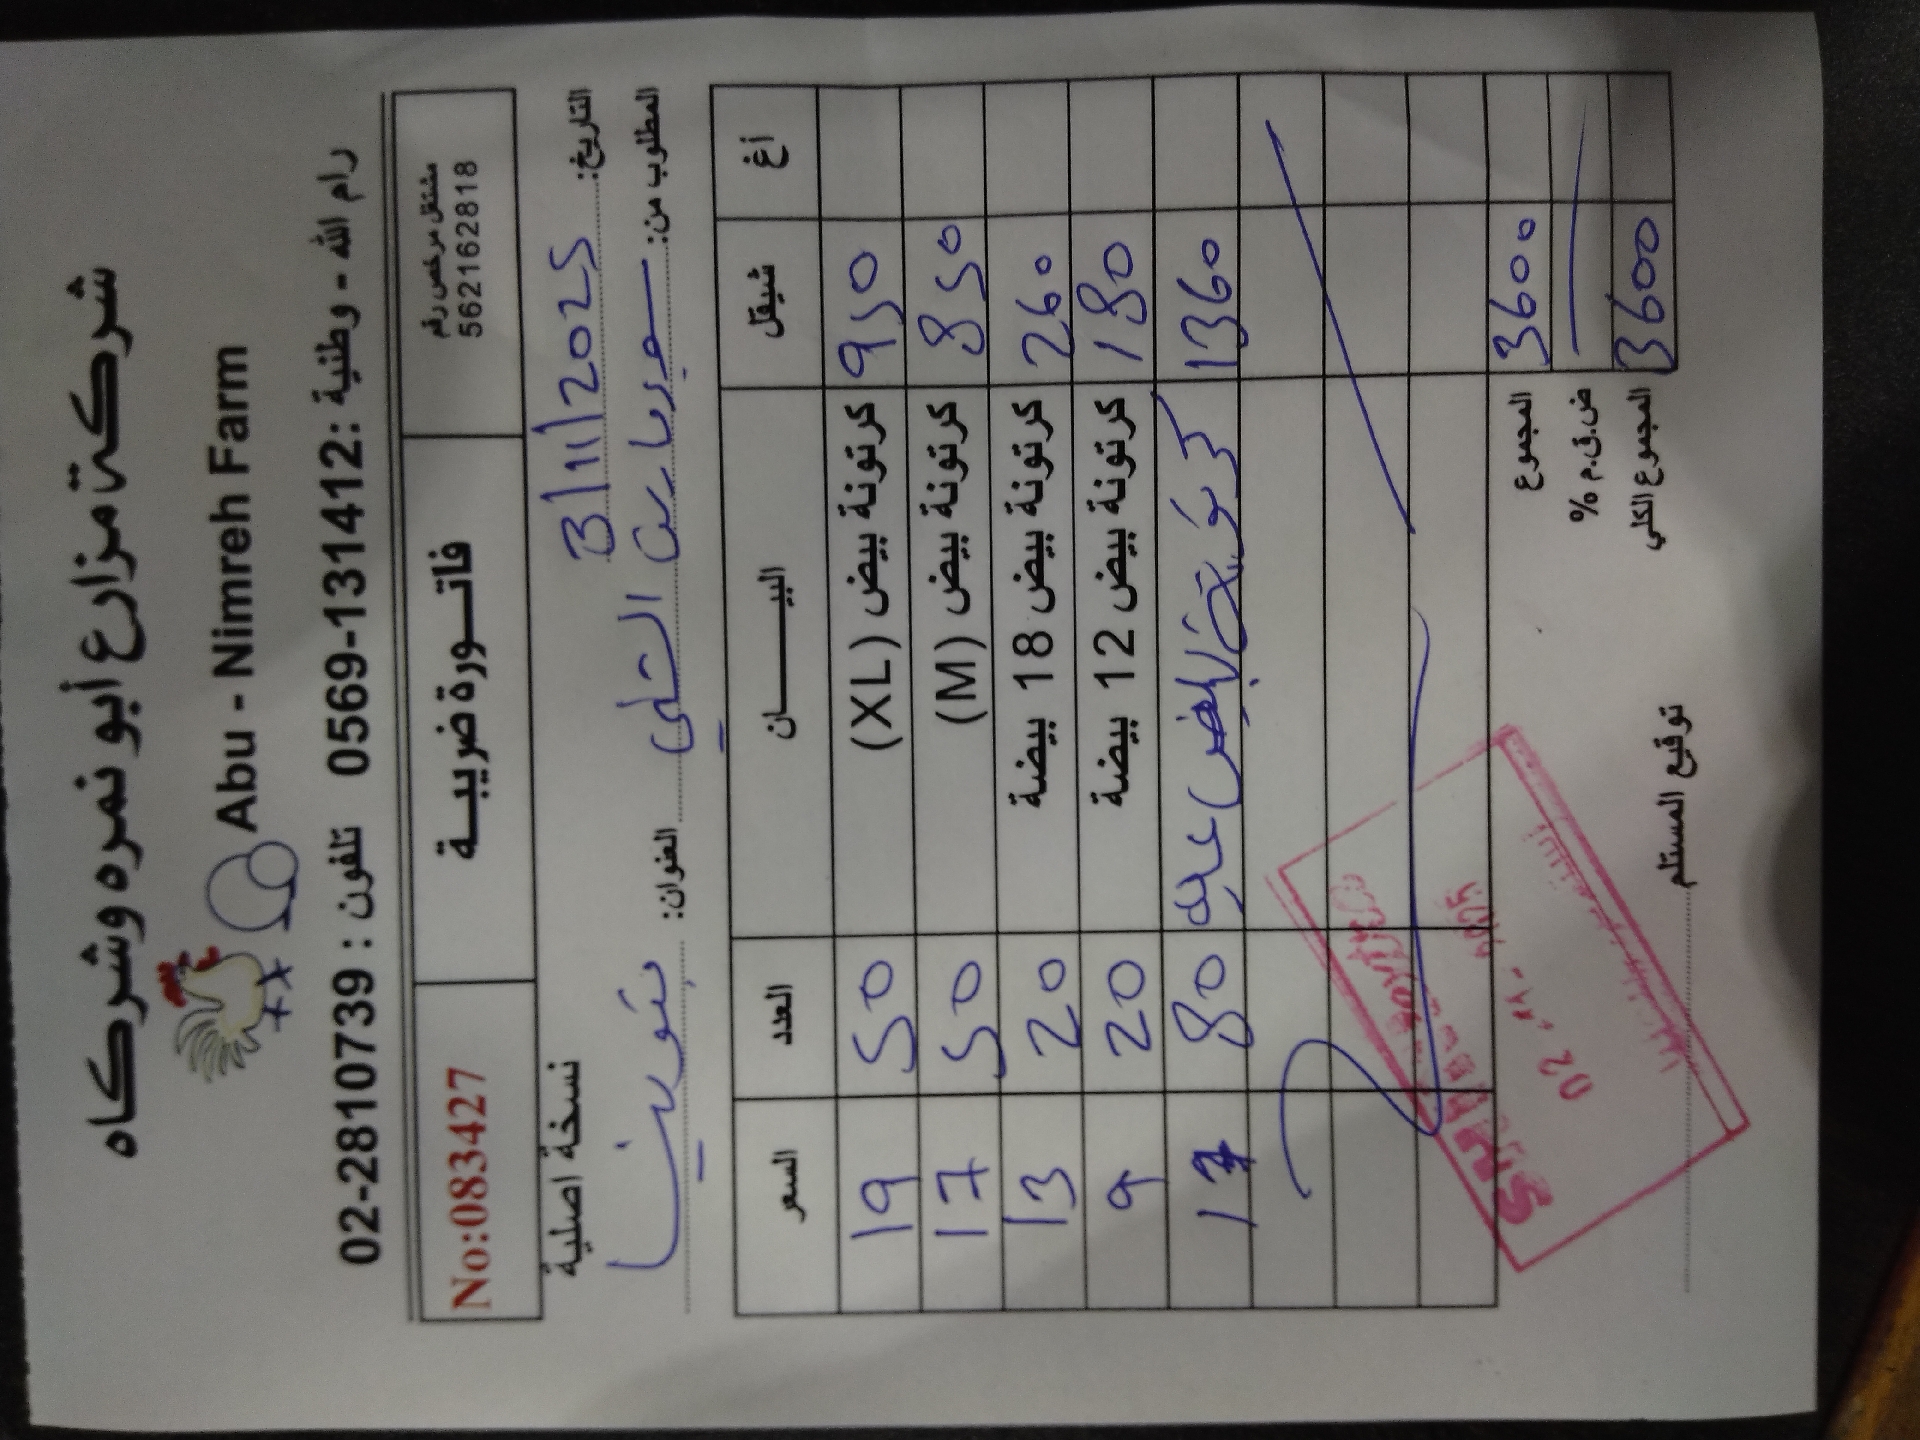 شركة مزارع أبو نمره وشركاه
Abu - Nimreh Farm
رام الله - وطنية : 0569-131412 تلفون : 02-2810739
مشتغل مرخص رقم 562162818
فاتـــورة ضريبيـــة
No:083427
التاريخ: 3/11/2025
نسخة اصلية
المطلوب من: سوبرماركت التلي العنوان: بيتونيا
أغ شيقل البيـــــــان العدد السعر
950 كرتونة بيض (XL) 50 19
850 كرتونة بيض (M) 50 17
260 كرتونة بيض 18 بيضة 20 13
180 كرتونة بيض 12 بيضة 20 9
1360 80 17
المجموع 3600
ض.ق.م %
المجموع الكلي 3600
توقيع المستلم